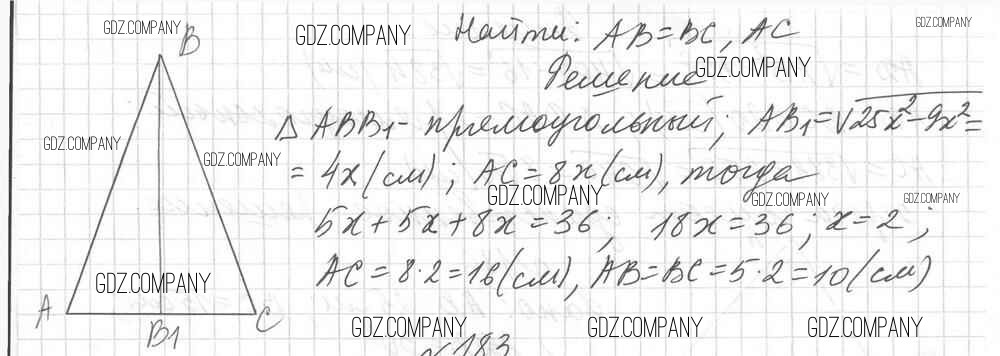 GDZ.COMPANY GDZ.COMPANY GDZ.COMPANY
B Найти: AB=BC, AC
Решение GDZ.COMPANY
GDZ.COMPANY Δ ABB₁- прямоугольный; AB₁=√25x²-9x²=
GDZ.COMPANY = 4x(см); AC=8x(см), тогда
GDZ.COMPANY GDZ.COMPANY GDZ.COMPANY
5x+5x+8x=36; 18x=36; x=2;
GDZ.COMPANY AC=8·2=16(см), AB=BC=5·2=10(см)
A B1 C
GDZ.COMPANY GDZ.COMPANY GDZ.COMPANY
№183